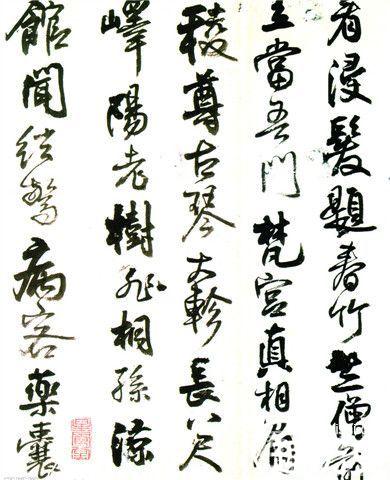 看浸髮題春竹竺僧前
立當吾門梵宮真相眉
稜尊古琴大軫長八尺
嶧陽老樹非桐孫涼
館聞絃驚病客藥囊